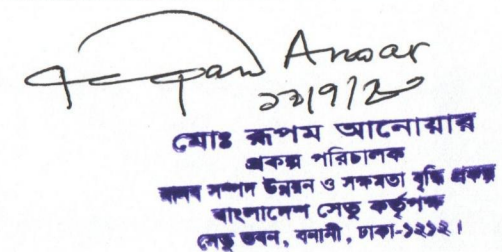 Anwar
মোঃ রূপম আনোয়ার
প্রকল্প পরিচালক
মানব সম্পদ উন্নয়ন ও সক্ষমতা বৃদ্ধি প্রকল্প
বাংলাদেশ সেতু কর্তৃপক্ষ
সেতু ভবন, বনানী, ঢাকা-১২১২।